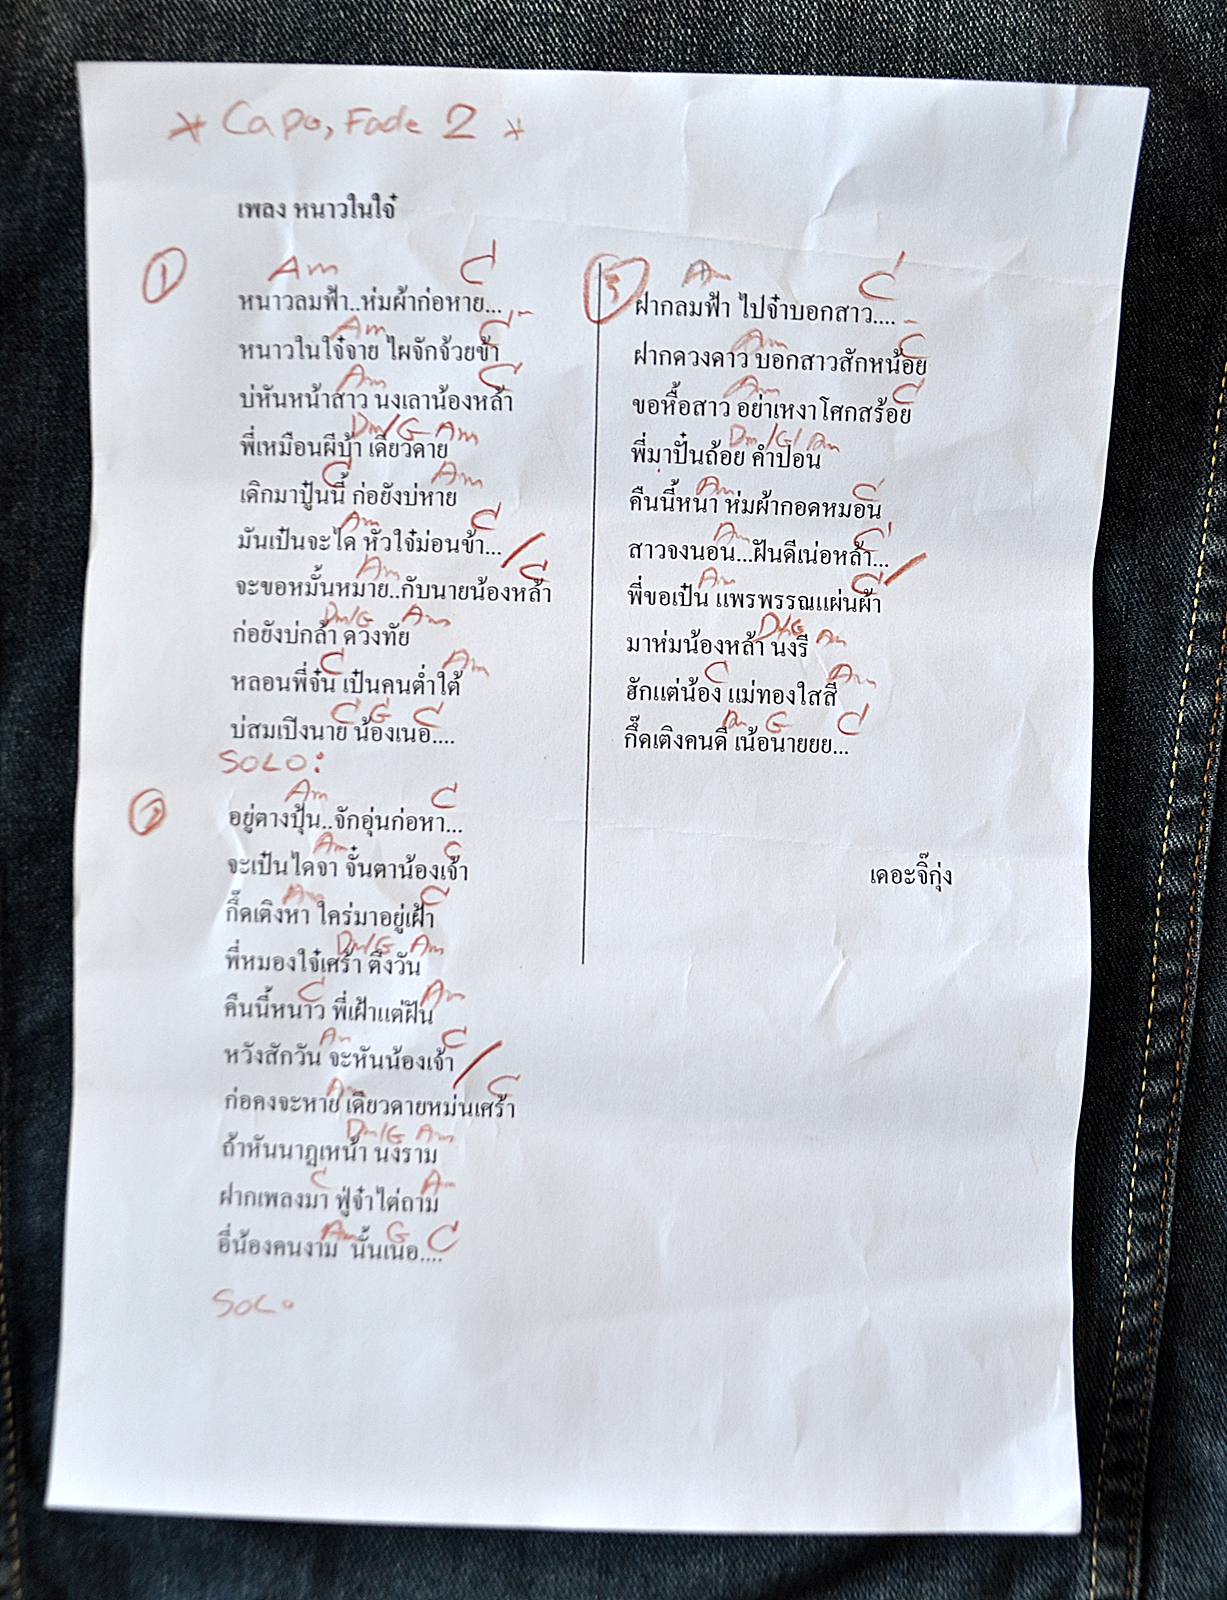 * Capo, Fade 2 *
เพลง หนาวในใจ๋
1
Am C
หนาวลมฟ้า..ห่มผ้าก่อหาย...
Am C
หนาวในใจ๋จาย ไผจักจ้วยข้า
Am C
บ่หันหน้าสาว นงเลาน้องหล้า
Dm/G Am
พี่เหมือนผีบ้า เดียวดาย
C Am
เดิกมาปู๋นนี้ ก่อยังบ่หาย
Am C
มันเป๋นจะได หัวใจ๋ม่อนข้า... /
Am C
จะขอหมั้นหมาย..กับนายน้องหล้า
Dm/G Am
ก่อยังบ่กล้า ดวงทัย
C Am
หลอนพี่จั๋น เป๋นคนต่ำใต้
C G C
บ่สมเปิงนาย น้องเนอ....
SOLO:
2
Am C
อยู่ตางปุ้น..จักอุ่นก่อหา...
Am C
จะเป๋นไดจา จั๋นตาน้องเจ้า
Am C
กึ๊ดเติงหา ใคร่มาอยู่เฝ้า
Dm/G Am
พี่หมองใจ๋เศร้า ตึงวัน
C Am
คืนนี้หนาว พี่เฝ้าแต่ฝัน
Am C
หวังสักวัน จะหันน้องเจ้า /
Am C
ก่อคงจะหาย เดียวดายหม่นเศร้า
Dm/G Am
ถ้าหันนาฏเหน้า นงราม
C Am
ฝากเพลงมา ฟู่จ๋าไต่ถาม
Am G C
อี่น้องคนงาม นั้นเนอ....
SOLO
3
Am C
ฝากลมฟ้า ไปจ๋าบอกสาว....
Am C
ฝากดวงดาว บอกสาวสักหน้อย
Am C
ขอหื้อสาว อย่าเหงาโศกสร้อย
Dm/G/Am
พี่มาปั๋นถ้อย คำป้อน
Am C
คืนนี้หนา ห่มผ้ากอดหมอน
Am C
สาวจงนอน...ฝันดีเน่อหล้า... /
Am C
พี่ขอเป๋น แพรพรรณแผ่นผ้า
Dm/G Am
มาห่มน้องหล้า นงรี
C Am
ฮักแต่น้อง แม่ทองใสสี
Dm G C
กึ๊ดเติงคนดี เน้อนายยย...
เดอะจิ๊กุ่ง